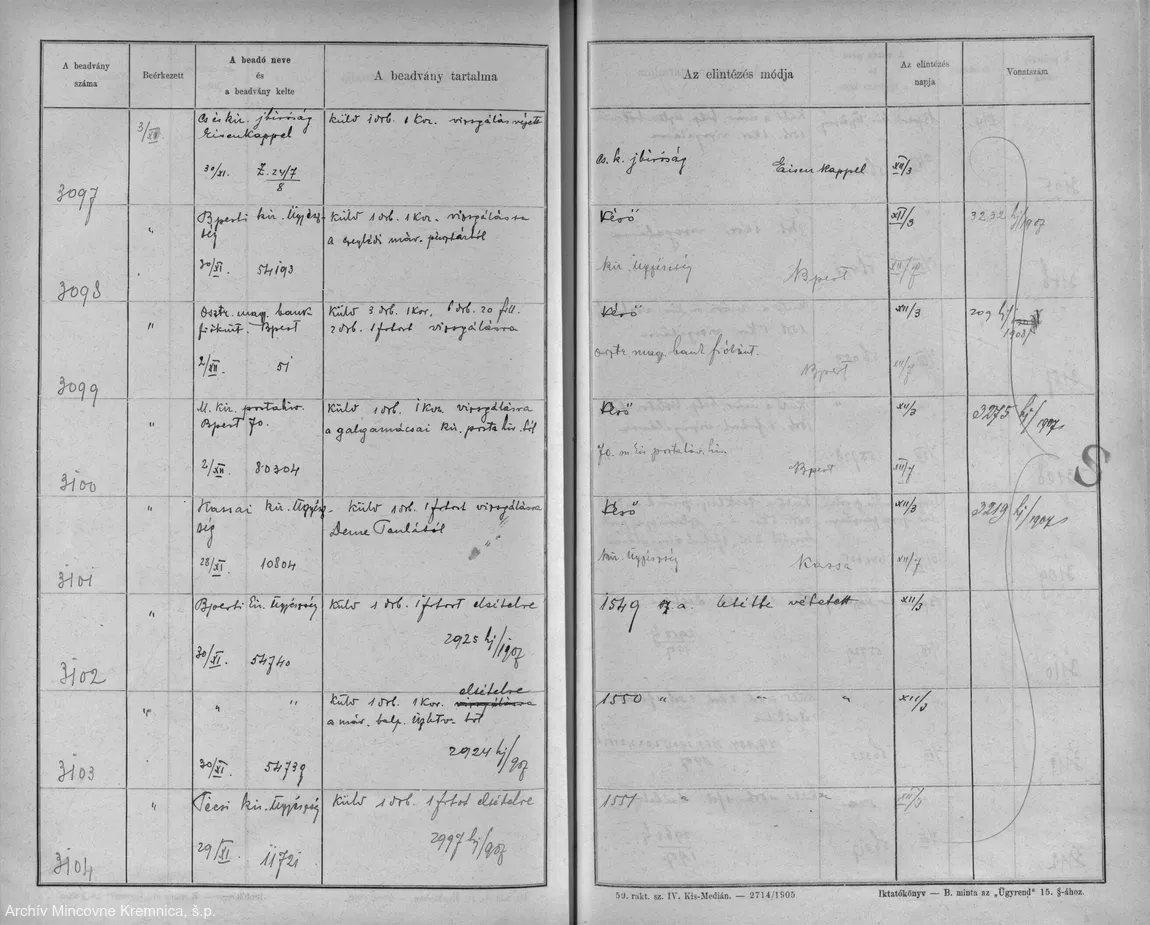 A beadvány száma
Beérkezett
A beadó neve
és
a beadvány kelte
A beadvány tartalma
Az elintézés módja
Az elintézés napja
Vonatszám
3097
3/XII
Cs és kir. jbiróság
Eisenkappel
30/XI. Z. 24/7
8
Küld 1 drb. 1 Kor. vizsgálás végett
cs. k. jbiróság Eisenkappel
XII/3
3098
"
Bpesti kir. Ügyész-
ség
30/XI. 54193
Küld 1 drb. 1 Kor. vizsgálásra
a czeglédi máv. pénztártól
Kérő
XII/3
3232 hj/907
kir. ügyészség Bpest
XII/7
3099
"
Osztr. mag. bank
fiókint. Bpest
2/XII 51
Küld 3 drb. 1 Kor, 1 drb. 20 fill.
2 drb. 1 frtost vizsgálásra
Kérő
XII/3
209 hj/
1908
osztr. mag. bank fiókint.
Bpest
XII/7
3100
"
M. kir. postahiv.
Bpest 70.
2/XII 80304
Küld 1 drb. 1 Kor. vizsgálásra
a galgamácsai kir. posta hiv. től
Kérő
XII/3
3275 hj/907
70. m. kir. postahiv.
Bpest
XII/7
3101
"
Kassai kir. Ügyész-
ség
28/XI 10804
Küld 1 drb. 1 frtost vizsgálásra
Kérő
XII/3
3219 hj/907
kir. ügyészség Kassa
XII/7
3102
"
Bpesti kir. ügyészség
30/XI. 54740
Küld 1 drb. 1 frtost elitélve
2925 hj/907
1549 sz. a. letétbe vétetett
XII/3
3103
" " "
30/XI. 54739
elitélve
Küld 1 drb. 1 Kor. vizsgálásra
a máv.
2924 hj/907
1550 " " "
XII/3
3104
"
Pécsi kir. ügyészség
29/XI. 11721
Küld 1 drb. 1 frtost elitélve
2997 hj/907
1551 "
XII/3
S
59. rakt. sz. IV. Kis-Medián. — 2714/1905
Iktatókönyv — B. minta az „Ügyrend" 15. §-ához.
Archív Mincovne Kremnica, š.p.